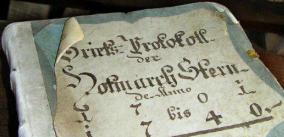 Briefs-Protokoll
der
Hofmarch Stern
de Anno
1 7 0 1
bis
1 7 4 0.